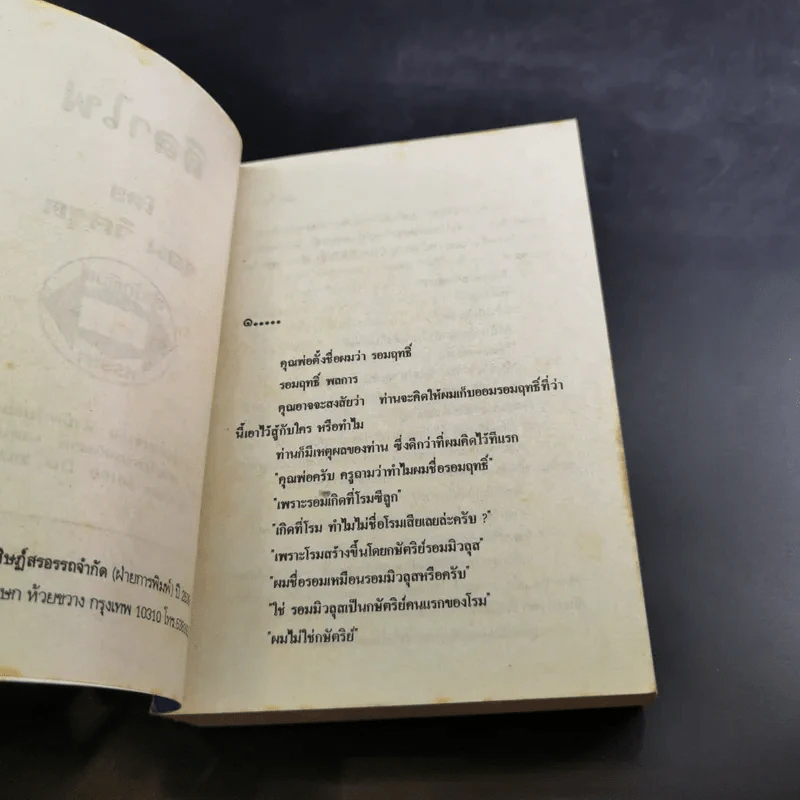 ดิษฎ์สรอรรถจำกัด (ฝ่ายการพิมพ์) ปี
ห้วยขวาง กรุงเทพ 10310
๑.....
คุณพ่อตั้งชื่อผมว่า รอมฤทธิ์
รอมฤทธิ์ พลการ
คุณอาจจะสงสัยว่า ท่านจะคิดให้ผมเก็บออมรอมฤทธิ์ที่ว่า
นี้เอาไว้สู้กับใคร หรือทำไม
ท่านก็มีเหตุผลของท่าน ซึ่งดีกว่าที่ผมคิดไว้ทีแรก
"คุณพ่อครับ ครูถามว่าทำไมผมชื่อรอมฤทธิ์"
"เพราะรอมเกิดที่โรมซีลูก"
"เกิดที่โรม ทำไมไม่ชื่อโรมเสียเลยล่ะครับ ?"
"เพราะโรมสร้างขึ้นโดยกษัตริย์รอมมิวลุส"
"ผมชื่อรอมเหมือนรอมมิวลุสหรือครับ"
"ใช่ รอมมิวลุสเป็นกษัตริย์คนแรกของโรม"
"ผมไม่ใช่กษัตริย์"